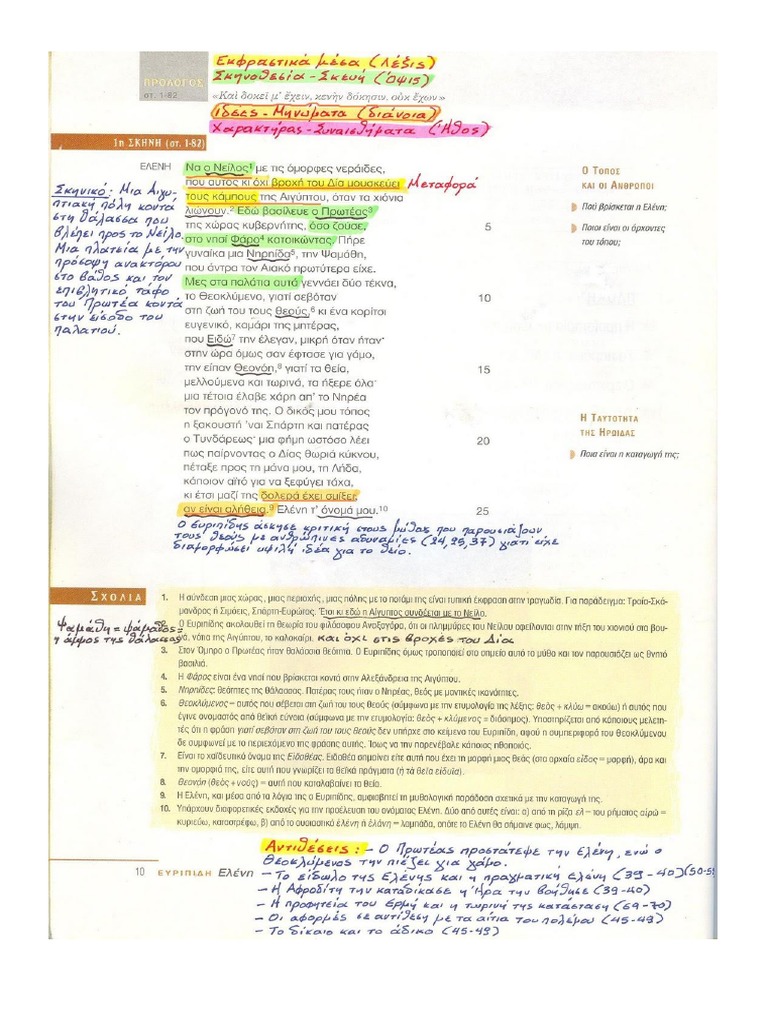 Εκφραστικά μέσα (Λέξις)
Σκηνοθεσία - Σκευή (Όψις)
ΠΡΟΛΟΓΟΣ
στ. 1-82
«Καὶ δοκεῖ μ' ἔχειν, κενὴν δόκησιν, οὐκ ἔχων»
ιδέες - Μηνύματα (διάνοια)
Χαρακτήρας - Συναισθήματα (Ήθος)
1η ΣΚΗΝΗ (στ. 1-82)
ΕΛΕΝΗ
Να ο Νείλος1 με τις όμορφες νεράιδες,
που αυτός κι όχι βροχή του Δία μουσκεύει Μεταφορά
τους κάμπους της Αιγύπτου, όταν τα χιόνια
λιώνουν.2 Εδώ βασίλευε ο Πρωτέας3
της χώρας κυβερνήτης, όσο ζούσε, 5
στο νησί Φάρο4 κατοικώντας. Πήρε
γυναίκα μια Νηρηίδα5, την Ψαμάθη,
που άντρα τον Αιακό πρωτύτερα είχε.
Μες στα παλάτια αυτά γεννάει δύο τέκνα,
το Θεοκλύμενο, γιατί σεβόταν 10
στη ζωή του τους θεούς,6 κι ένα κορίτσι
ευγενικό, καμάρι της μητέρας,
που Ειδώ7 την έλεγαν, μικρή όταν ήταν·
στην ώρα όμως σαν έφτασε για γάμο,
την είπαν Θεονόη,8 γιατί τα θεία, 15
μελλούμενα και τωρινά, τα ήξερε όλα·
μια τέτοια έλαβε χάρη απ' το Νηρέα
τον πρόγονό της. Ο δικός μου τόπος
η ξακουστή 'ναι Σπάρτη και πατέρας
ο Τυνδάρεως· μια φήμη ωστόσο λέει 20
πως παίρνοντας ο Δίας θωριά κύκνου,
πέταξε προς τη μάνα μου, τη Λήδα,
κάποιον αϊτό για να ξεφύγει τάχα,
κι έτσι μαζί της δολερά έχει σμίξει,
αν είναι αλήθεια.9 Ελένη τ' όνομά μου.10 25
Σκηνικό: Μια Αιγυ-
πτιακή πόλη κοντά
στη θάλασσα που
βλέπει προς το Νείλο.
Μια πλατεία με την
πρόσοψη ανακτόρου
στο βάθος και τον
επιβλητικό τάφο
του Πρωτέα κοντά
στην είσοδο του
παλατιού.
Ο ΤΟΠΟΣ
ΚΑΙ ΟΙ ΑΝΘΡΩΠΟΙ
Πού βρίσκεται η Ελένη;
Ποιοι είναι οι άρχοντες
του τόπου;
Η ΤΑΥΤΟΤΗΤΑ
ΤΗΣ ΗΡΩΙΔΑΣ
Ποια είναι η καταγωγή της;
Ο ευριπίδης άσκησε κριτική στους μύθους που παρουσιάζουν
τους θεούς με ανθρώπινες αδυναμίες (24, 25, 37) γιατί είχε
διαμορφώσει υψηλή ιδέα για το θείο.
ΣΧΟΛΙΑ
Ψαμάθη = ψάμαθος =
η άμμος της θάλασσας
1. Η σύνδεση μιας χώρας, μιας περιοχής, μιας πόλης με το ποτάμι της είναι τυπική έκφραση στην τραγωδία. Για παράδειγμα: Τροία-Σκά-
μανδρος ή Σιμόεις, Σπάρτη-Ευρώτας. Έτσι κι εδώ η Αίγυπτος συνδέεται με το Νείλο.
Ο Ευριπίδης ακολουθεί τη θεωρία του φιλόσοφου Αναξαγόρα, ότι οι πλημμύρες του Νείλου οφείλονται στην τήξη του χιονιού στα βου-
νά, νότια της Αιγύπτου, το καλοκαίρι. και όχι στις βροχές του Δία
3. Στον Όμηρο ο Πρωτέας ήταν θαλάσσια θεότητα. Ο Ευριπίδης όμως τροποποιεί στο σημείο αυτό το μύθο και τον παρουσιάζει ως θνητό
βασιλιά.
4. Η Φάρος είναι ένα νησί που βρίσκεται κοντά στην Αλεξάνδρεια της Αιγύπτου.
5. Νηρηίδες: θεότητες της θάλασσας. Πατέρας τους ήταν ο Νηρέας, θεός με μαντικές ικανότητες.
6. Θεοκλύμενος = αυτός που σέβεται στη ζωή του τους θεούς (σύμφωνα με την ετυμολογία της λέξης: θεός + κλύω = ακούω) ή αυτός που
έγινε ονομαστός από θεϊκή εύνοια (σύμφωνα με την ετυμολογία: θεὸς + κλύμενος = διάσημος). Υποστηρίζεται από κάποιους μελετη-
τές ότι η φράση γιατί σεβόταν στη ζωή του τους θεούς δεν υπήρχε στο κείμενο του Ευριπίδη, αφού η συμπεριφορά του Θεοκλύμενου
δε συμφωνεί με το περιεχόμενο της φράσης αυτής. Ίσως να την παρενέβαλε κάποιος ηθοποιός.
7. Είναι το χαϊδευτικό όνομα της Ειδοθέας. Ειδοθέα σημαίνει είτε αυτή που έχει τη μορφή μιας θεάς (στα αρχαία εἶδος = μορφή), άρα και
την ομορφιά της, είτε αυτή που γνωρίζει τα θεϊκά πράγματα (ἡ τὰ θεῖα εἰδυῖα).
8. Θεονόη (θεὸς + νοῦς) = αυτή που καταλαβαίνει τα θεία.
9. Η Ελένη, και μέσα από τα λόγια της ο Ευριπίδης, αμφισβητεί τη μυθολογική παράδοση σχετικά με την καταγωγή της.
10. Υπάρχουν διαφορετικές εκδοχές για την προέλευση του ονόματος Ελένη. Δύο από αυτές είναι: α) από τη ρίζα ελ – του ρήματος αἱρῶ =
κυριεύω, καταστρέφω, β) από το ουσιαστικό ἑλένη ή ἑλάνη = λαμπάδα, οπότε το Ελένη θα σήμαινε φως, λάμψη.
Αντιθέσεις: - Ο Πρωτέας προστάτεψε την Ελένη, ενώ ο
Θεοκλύμενος την πιέζει για γάμο.
- Το είδωλο της Ελένης και η πραγματική ελένη (39-40)
- Η Αφροδίτη την καταδίκασε η Ήρα την βοήθησε (39-40)
- Η προφητεία του Ερμή και η τωρινή της κατάσταση (69-70)
- Οι αφορμές σε αντίθεση με τα αίτια του πολέμου (45-49)
- Το δίκαιο και το άδικο (45-49)
10 ΕΥΡΙΠΙΔΗ Ελένη